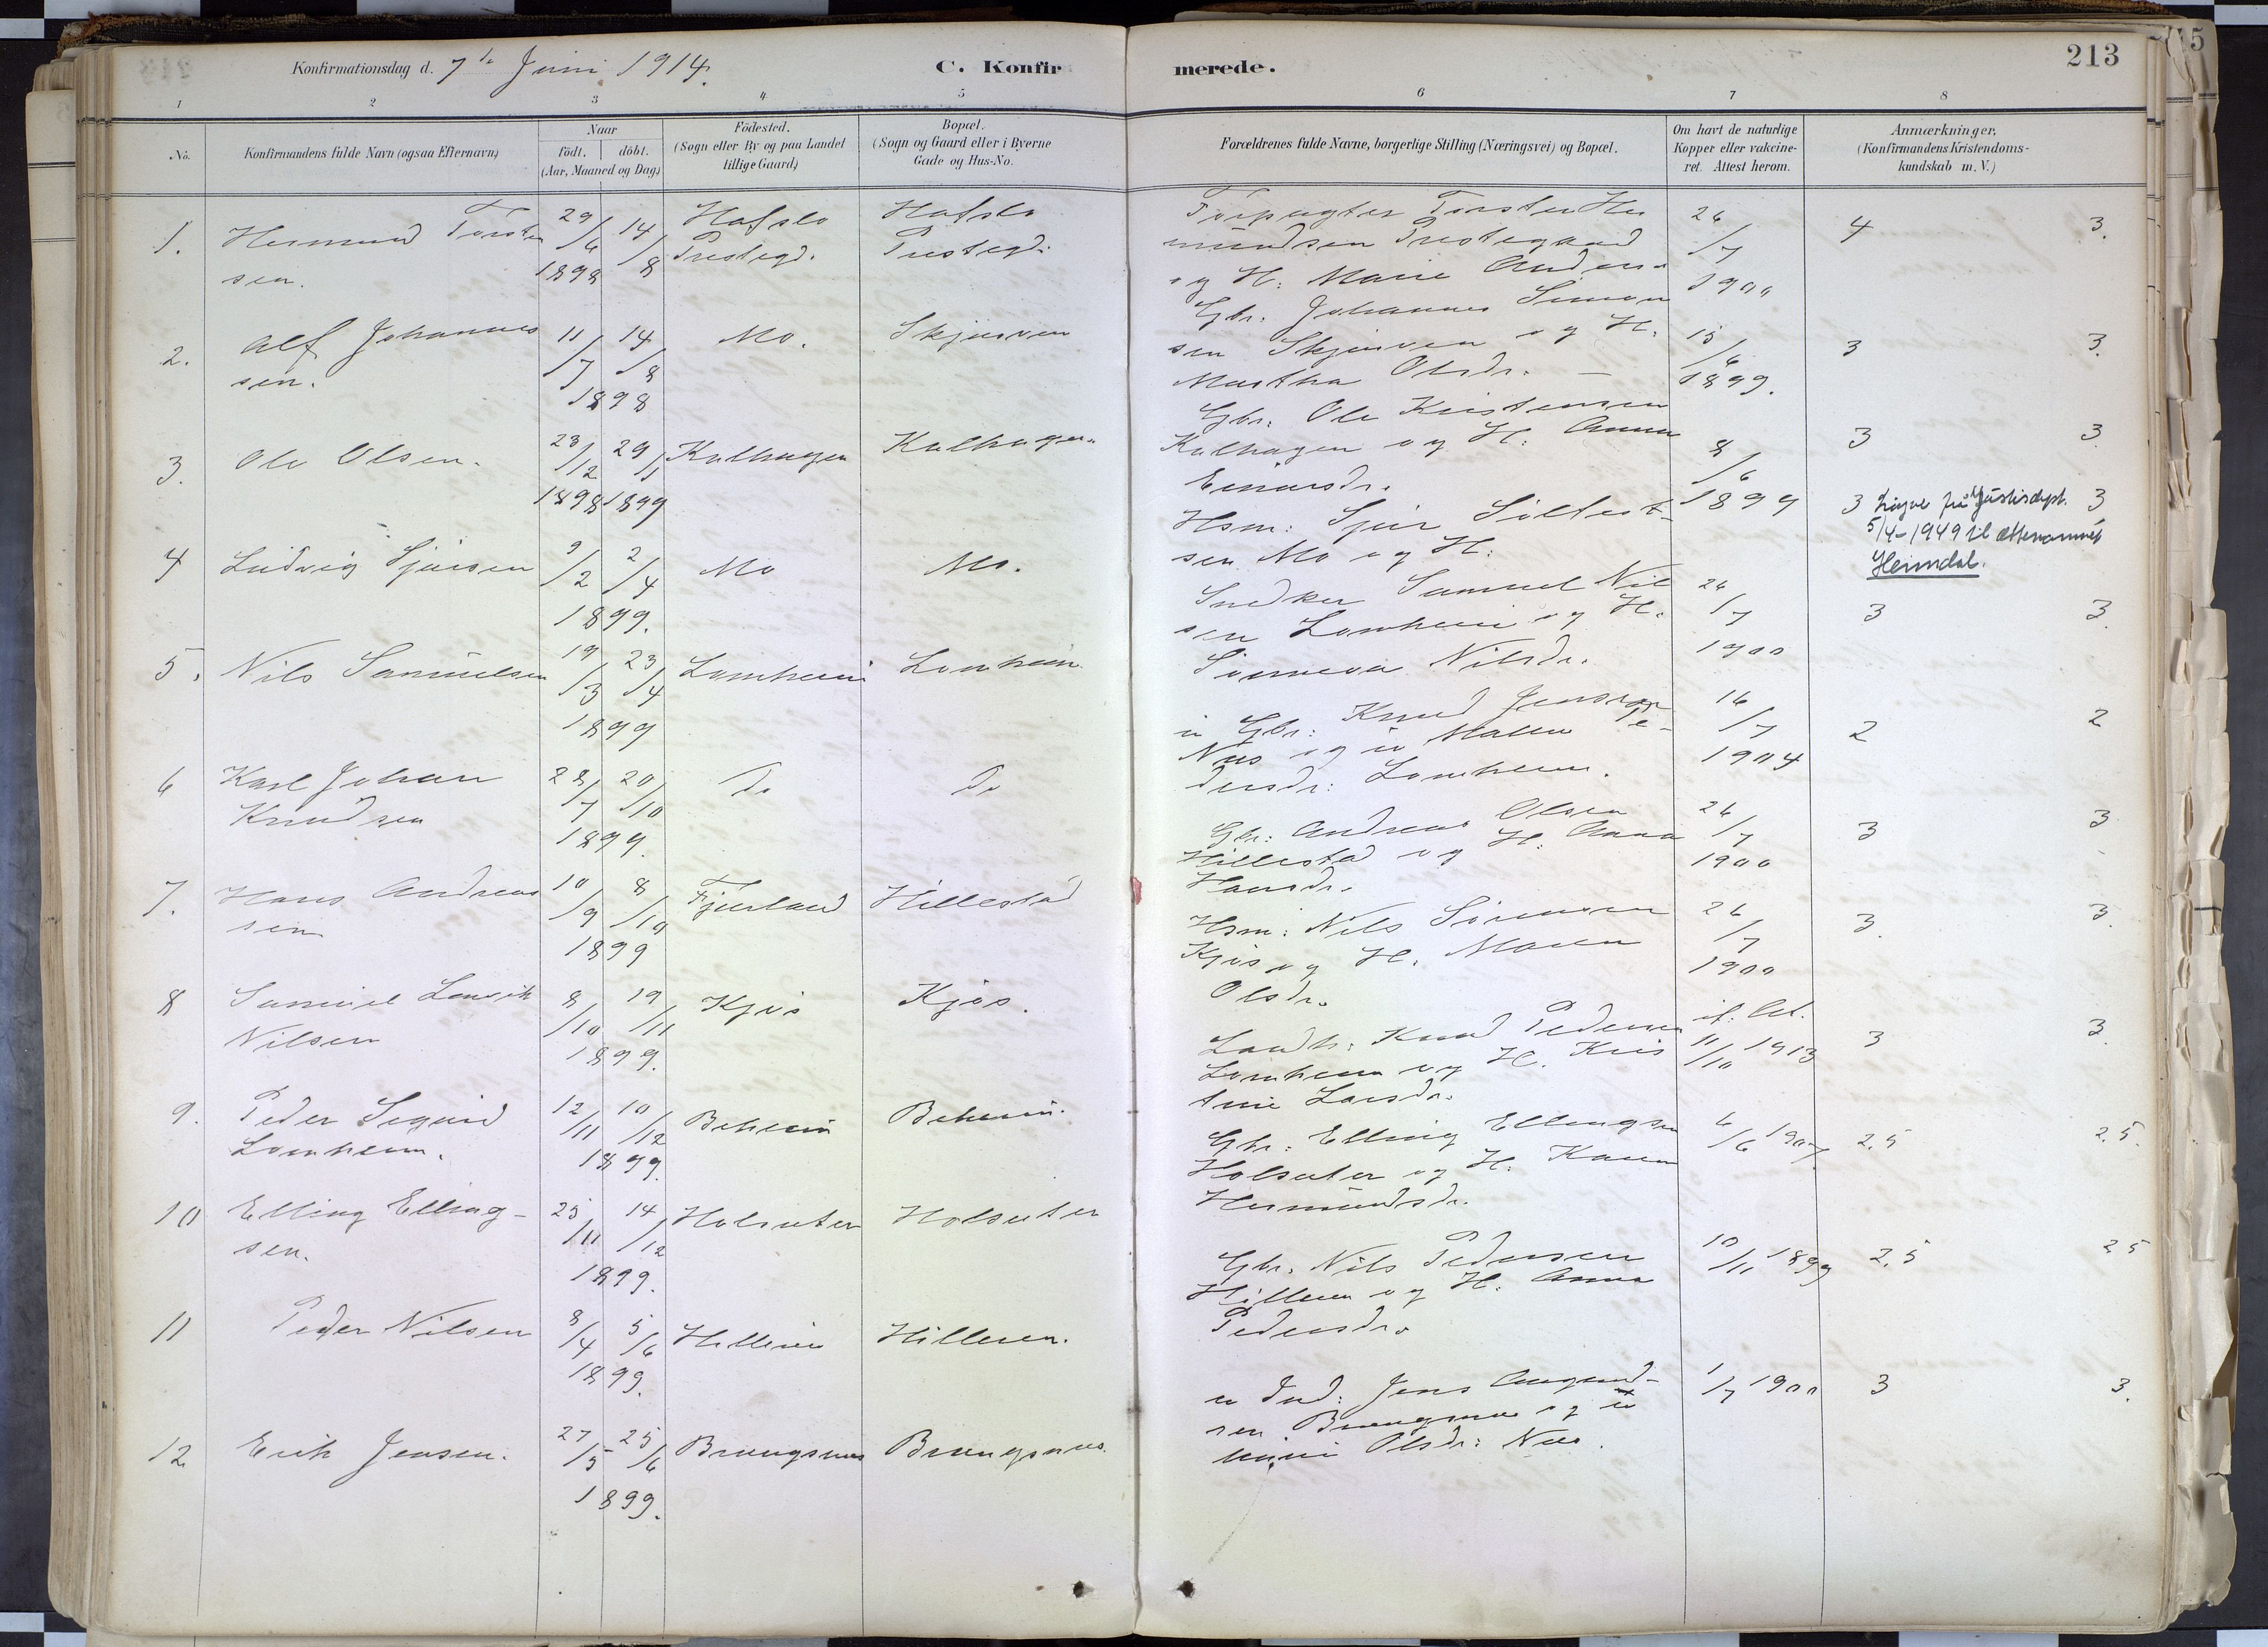 213
Konfirmationsdag d. 7de Juni 1914.
C. Konfirmerede.
1 2 3 4 5 6 7 8
No.
Konfirmandens fulde Navn (ogsaa Efternavn)
Naar
födt. döbt.
(Aar, Maaned og Dag.)
Födested.
(Sogn eller By og paa Landet
tillige Gaard)
Bopæl.
(Sogn og Gaard eller i Byerne
Gade og Hus-No.
Forældrenes fulde Navne, borgerlige Stilling (Næringsvei) og Bopæl.
Om havt de naturlige
Kopper eller vakcine-
ret. Attest herom.
Anmærkninger.
(Konfirmandens Kristendoms-
kundskab m. V.)
1. Hermund Torsten
sen.
29/6 1898 14/8
Hafslo
Prestegd.
Hafslo
Prestegd.
Forpagter Torsten Her
mundsen Prestegaard
og H: Marie Anders
26/7 1900
4 3.
2. Alf Johannes
sen.
11/7 14/8
1898
Mo. Skjerven
Gbr. Johannes Simon
sen Skjerven og H.
Martha Olsdr. -
15/6 1899.
3 3.
3. Ole Olsen.
23/12 1898 29/1 1899
Kalhagen Kalhagen
Gbr. Ole Kristensen
Kalhagen og H: Anna
Einarsdr.
8/6 1899
3 3.
4 Ludvig Sjursen
9/2 2/4
1899.
Mo Mo.
Hsm: Sjur
sen Mo og H:
3 3
Løyve frå Justisdept.
5/4-1949 til ættenamnet
Heimdal.
5. Nils Samuelsen
19/3 23/4
1899
Lomheim Lomheim
Snedker Samuel Nil
sen Lomheim og H:
Sønneva Nilsdr.
26/7 1900
3 3.
6 Karl Johan
Knudsen
28/7 20/10
1899.
Do Do
u Gbr: Knud Jensen
Næs og u Malen Pe-
dersdr: Lomheim.
16/7 1904
2 2
7. Hans Andreas
sen
10/9 8/10
1899
Fjærland Hillestad
Gbr: Andreas Olsen
Hillestad og H. Anna
Hansdr.
26/7 1900
3 3
8 Samuel
Nilsen
8/10 19/11
1899.
Kjøs Kjøs.
Hsm: Nils Sørensen
Kjøs og H. Maren
Olsdr.
26/7 1900
3. 3.
9. Peder Sigurd
Lomheim.
12/11 10/12
1899.
Beheim Beheim.
Landh: Knud Pedersen
Lomheim og H. Kris
tine Larsdr.
if. At.
11/10 1913
3 3.
10 Elling Elling-
sen.
25/11 14/12
1899.
Holsæter Holsæter
Gbr: Elling Ellingsen
Holsæter og H: Karen
Hermundsdr.
6/6 1907.
2,5 2,5.
11 Peder Nilsen
8/4 5/6
1899.
Hilleren Hilleren.
Gbr. Nils Pedersen
Hilleren og H: Anna
Pedersdr.
10/11 1899
2,5 2 5
12 Erik Jensen.
27/5 25/6
1899.
Brængsnæs Brængsnæs.
u Ind: Jens Aagund-
sen Brængsnæs og u
Olsdr: Næs.
1/7 1900
3 3.